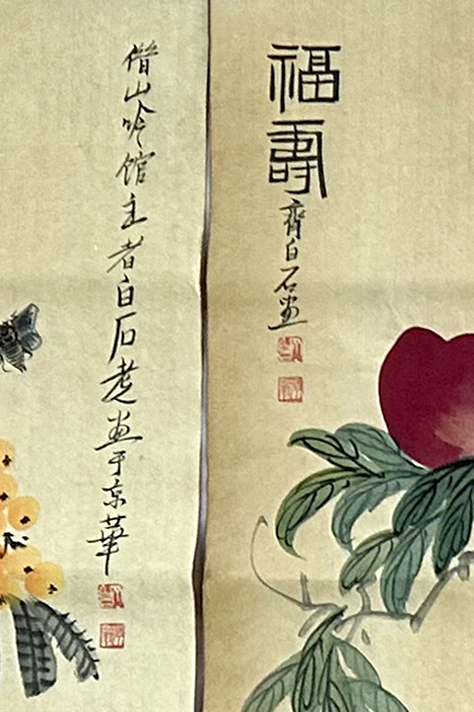 福壽
齊白石画
借山吟馆主者白石老画于京華